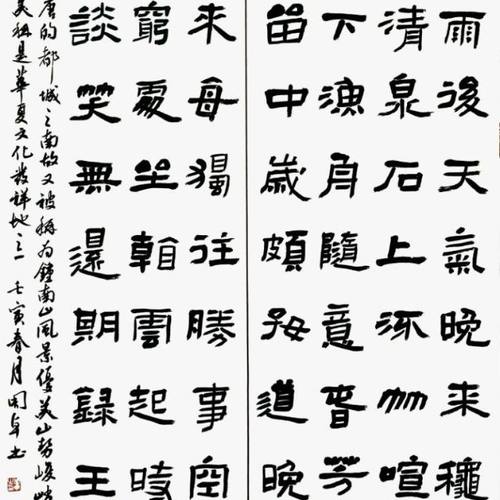 雨後天氣晚來穐
清泉石上流竹喧
下漁舟隨意春芳
留中歲頗好道晚
來每獨往勝事空
窮處坐看雲起時
談笑無還期錄王
唐的都城之南故又被稱为鐘南山風景優美山勢峻峭
美稱是華夏文化發祥地之一 壬寅春月